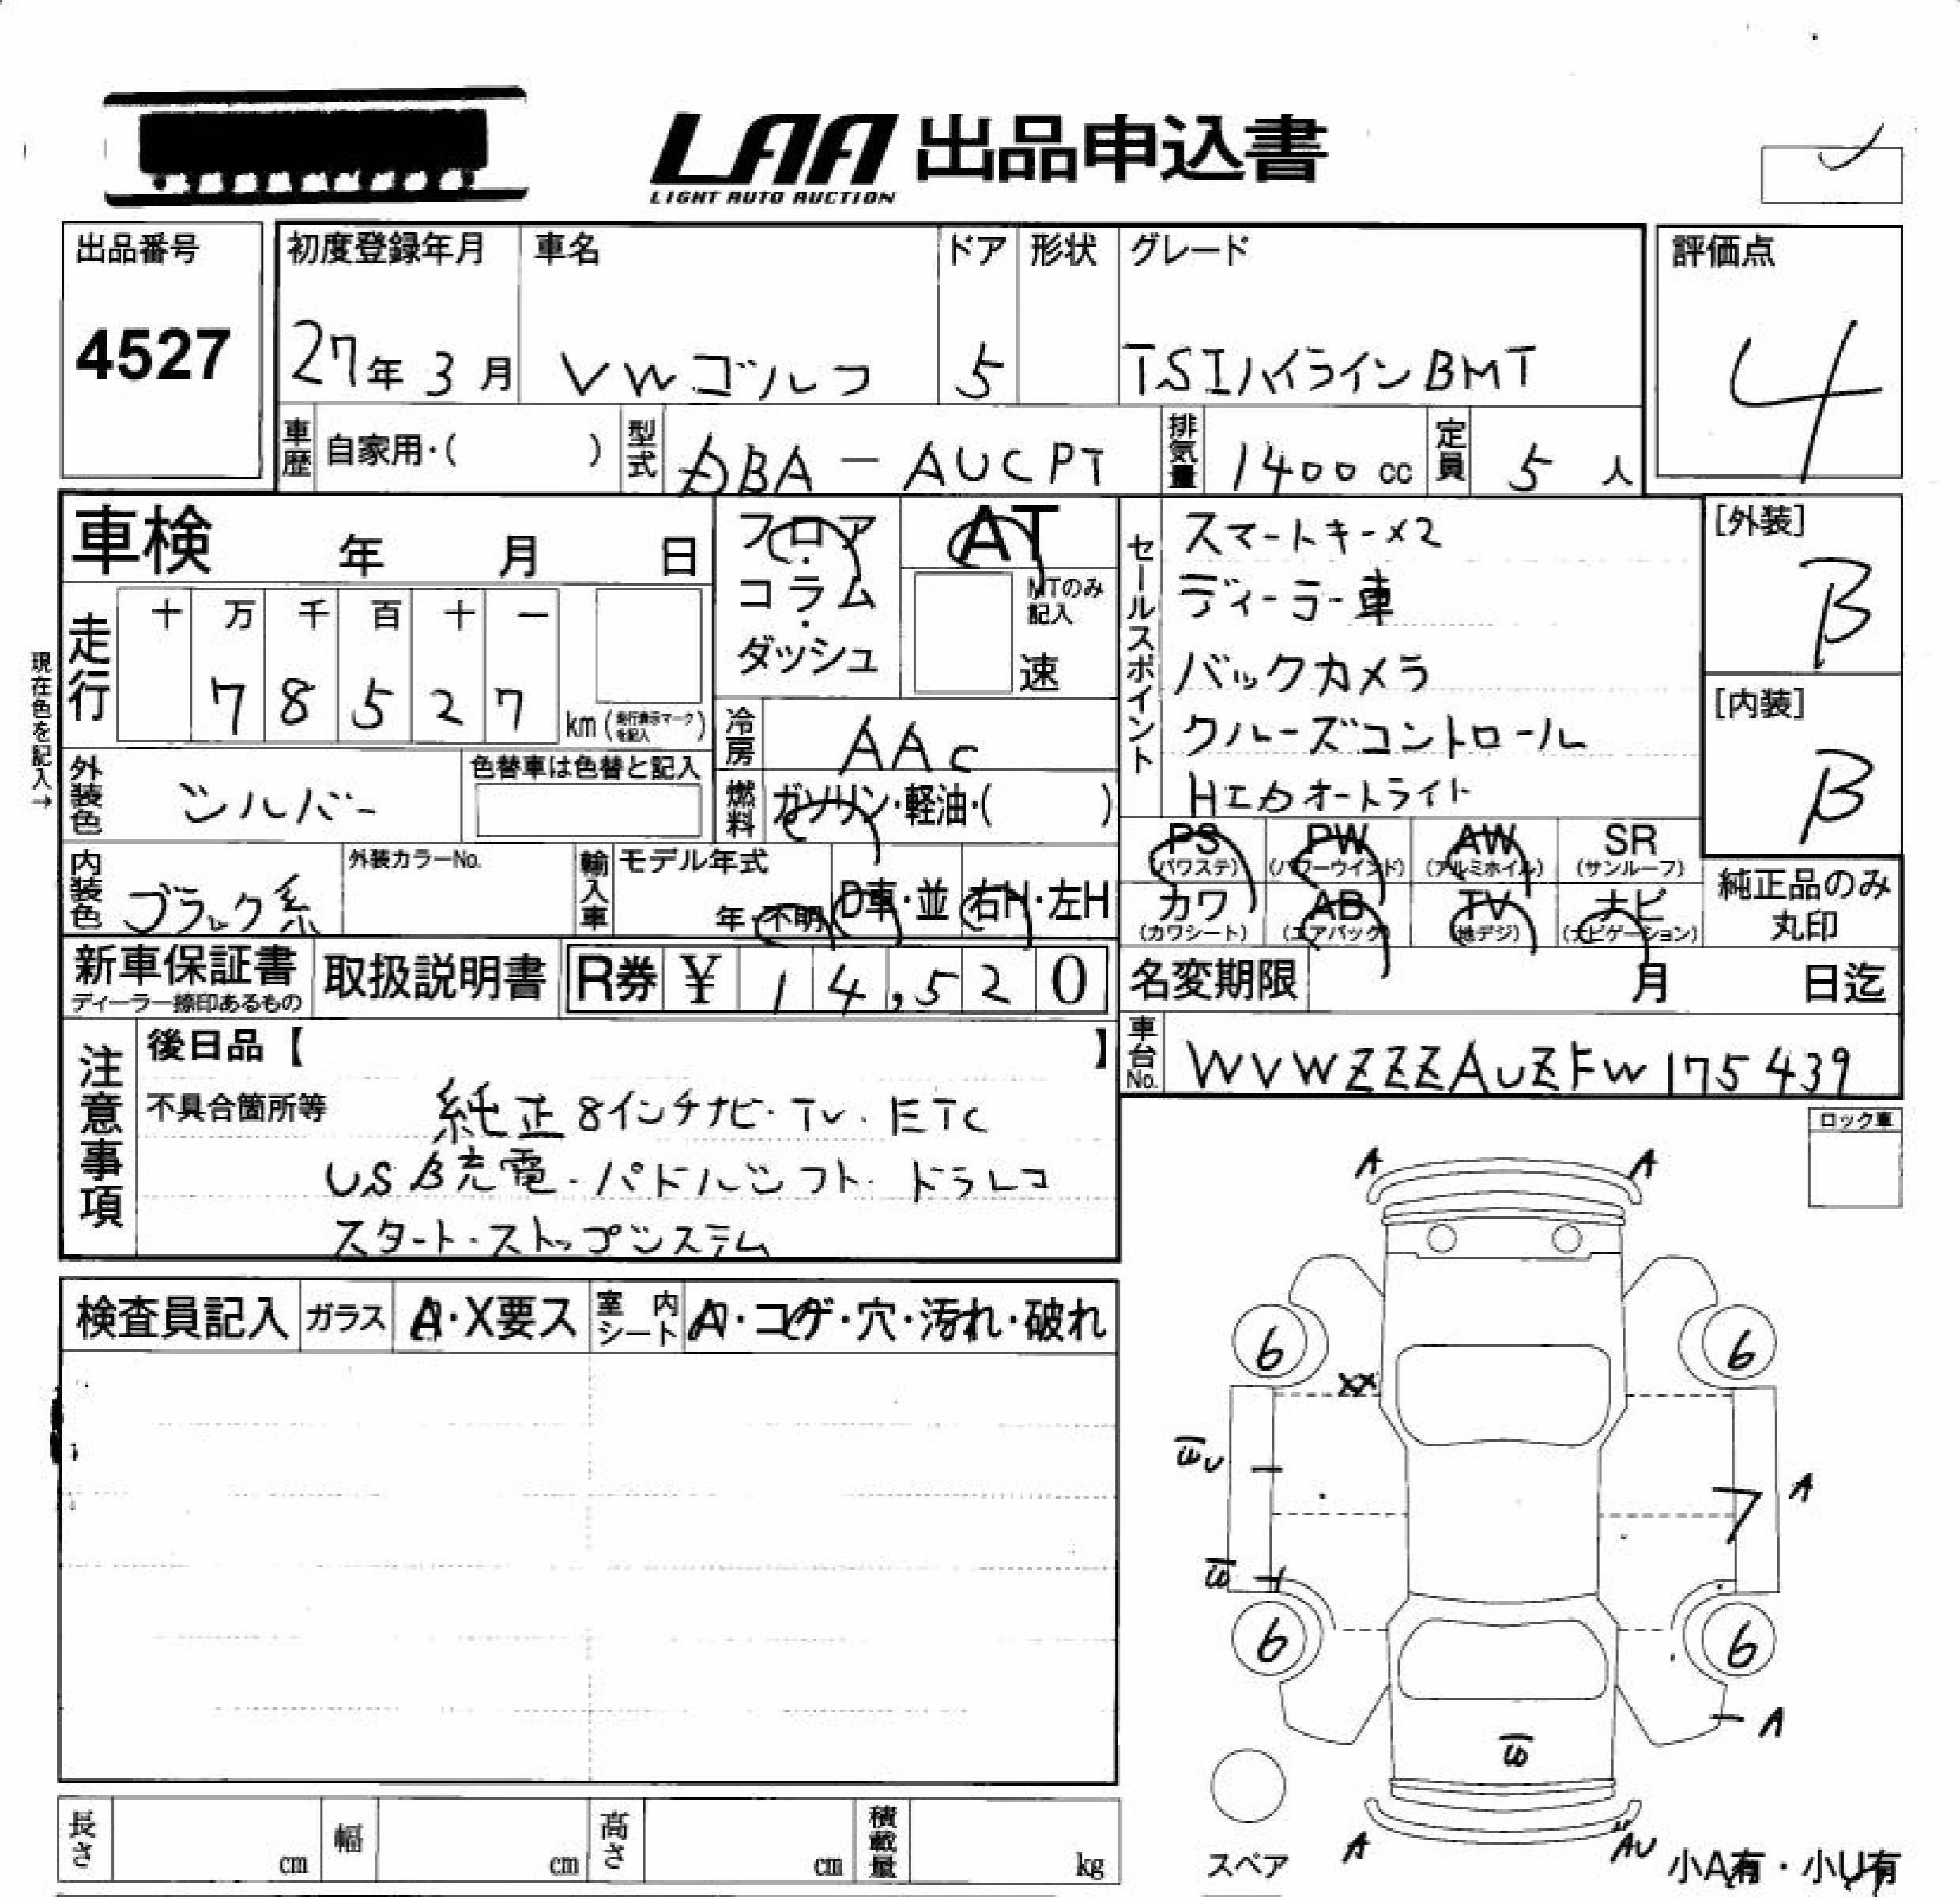 LAA 出品申込書
LIGHT AUTO AUCTION
出品番号
4527
初度登録年月
27年 3月
車名
VWゴルフ
ドア
5
形状
グレード
TSIハイラインBMT
評価点
4
車歴 自家用・( )
型式 DBA-AUCPT
排気量 1400cc
定員 5人
車検 年 月 日
フロア・コラム・ダッシュ
AT
MTのみ記入
速
セールスポイント
スマートキー×2
ディーラー車
バックカメラ
クルーズコントロール
HIDオートライト
[外装]
B
[内装]
B
現在色を記入→
走行
十 万 千 百 十 一
7 8 5 2 7
km (走行表示マークを記入)
冷房 AAC
燃料 ガソリン・軽油・( )
外装色 シルバー
色替車は色替と記入
内装色 ブラック系
外装カラーNo.
輸入車 モデル年式
年・不明 D車・並 右H・左H
PS (パワステ) PW (パワーウインド) AW (アルミホイル) SR (サンルーフ)
カワ (カワシート) AB (エアバック) TV (地デジ) ナビ (ナビゲーション)
純正品のみ
丸印
新車保証書
ディーラー捺印あるもの
取扱説明書
R券 ¥ 14,520
名変期限 月 日迄
車台No. WVWZZZAUZFW175439
注意事項
後日品【 】
不具合箇所等
純正8インチナビ・TV・ETC
USB充電・パドルシフト・ドラレコ
スタート・ストップシステム
ロック車
検査員記入
ガラス A・X要ス
室内シート A・コゲ・穴・汚れ・破れ
A A
6 6
XX
W U
A
7
W
6 6
A
W
A AU
スペア
小A有・小U有
長さ cm
幅 cm
高さ cm
積載量 kg